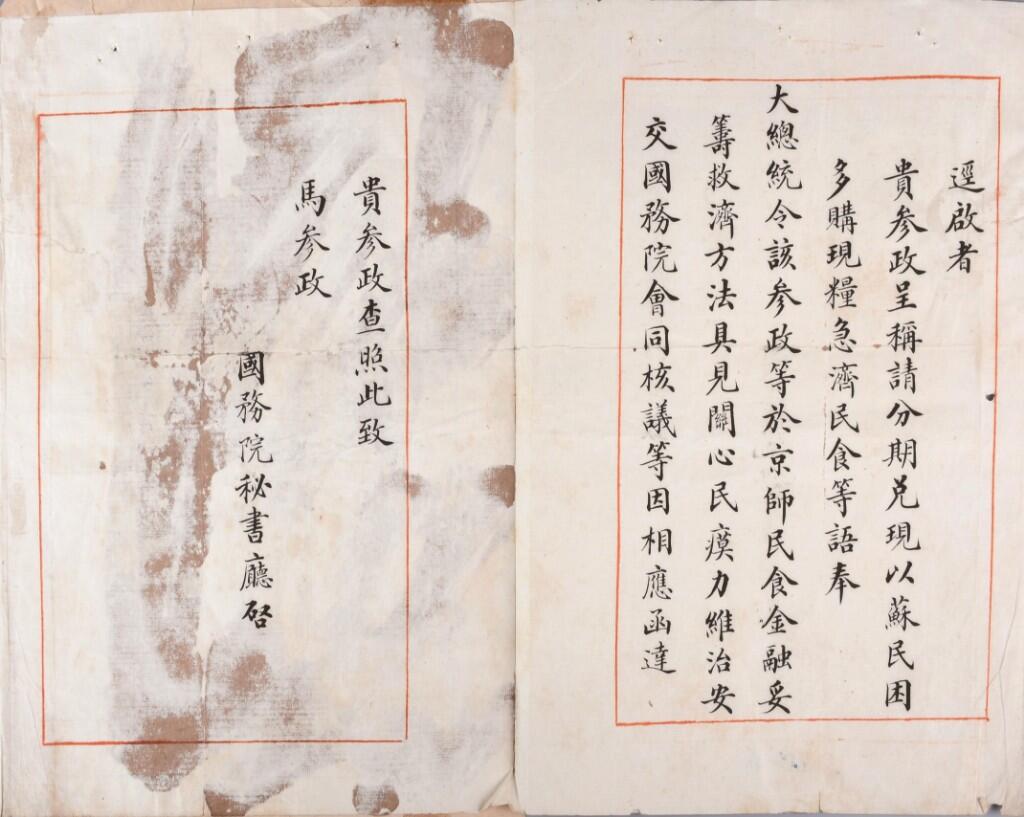 逕啟者
貴參政呈稱請分期兑現以蘇民困
多購現糧急濟民食等語奉
大總統令該參政等於京師民食金融妥
籌救濟方法具見關心民瘼力維治安
交國務院會同核議等因相應函達
貴參政查照此致
馬參政
國務院秘書廳啓